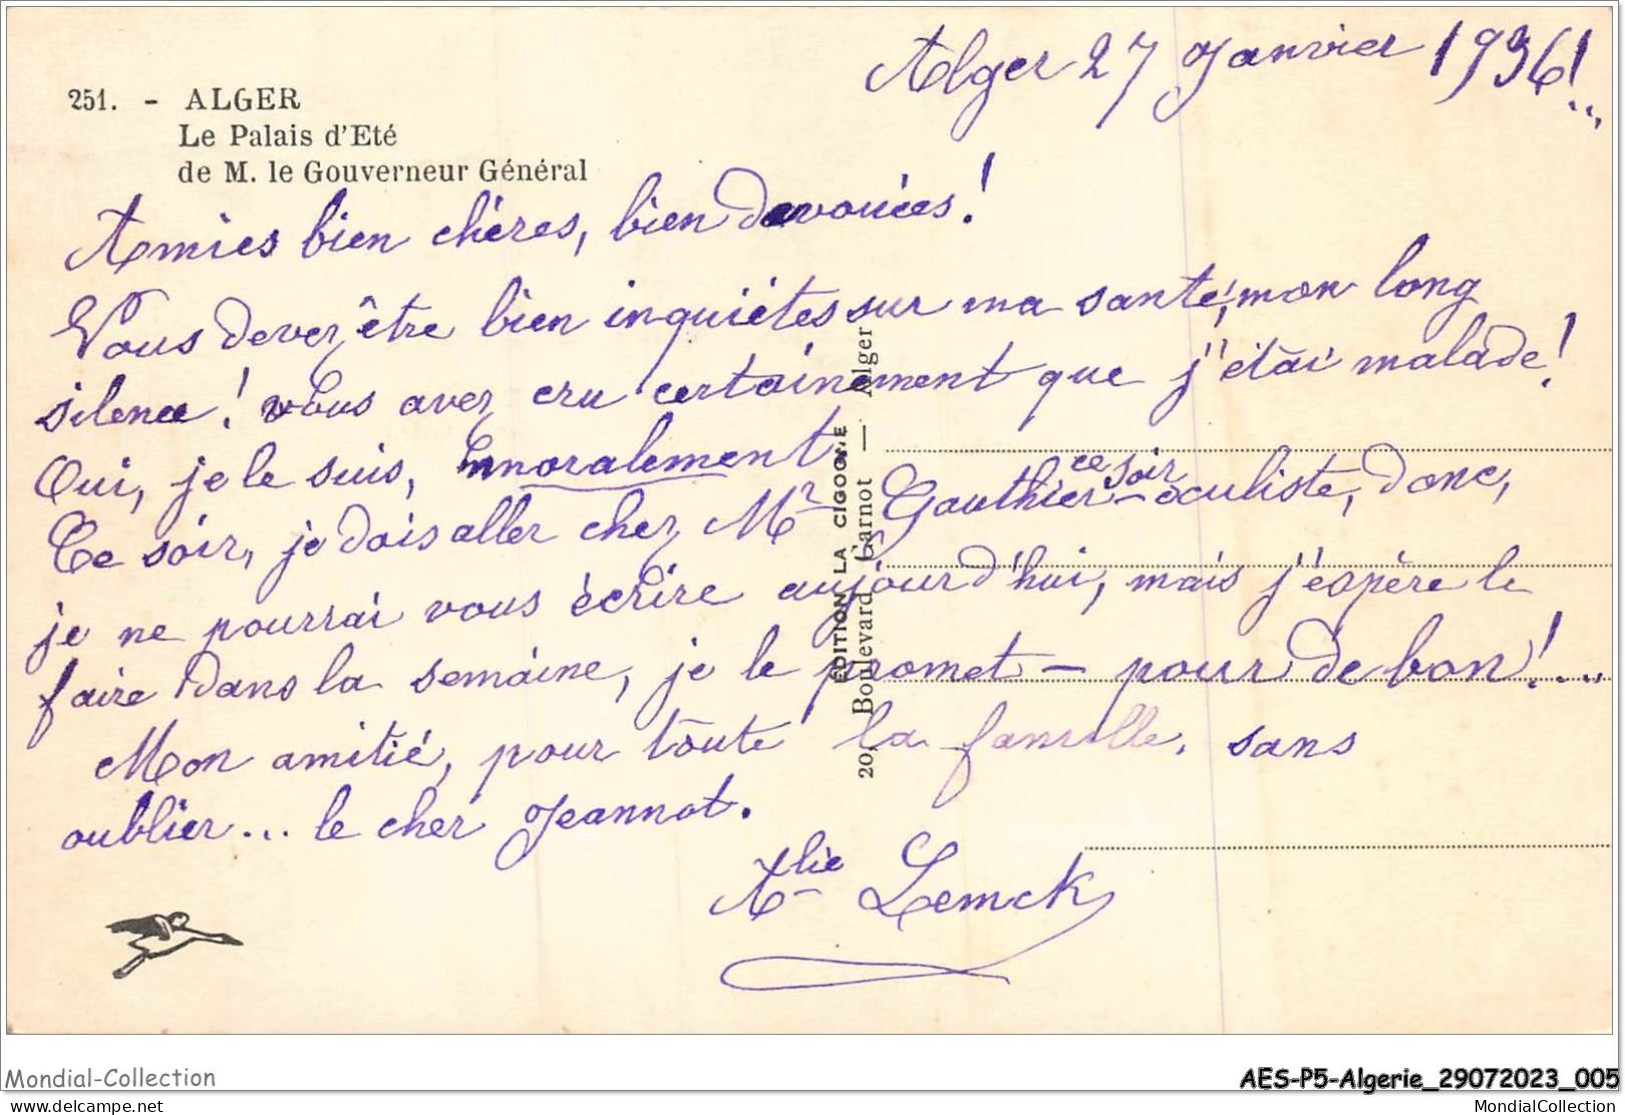 Alger 27 Janvier 1936!..,
251. - ALGER
Le Palais d'Eté
de M. le Gouverneur Général
Amies bien chères, bien devouées!
Vous devez être bien inquiétes sur ma santé, mon long
silence! vous avez cru certainement que j'étai malade!
Oui, je le suis, moralement
Ce soir, je dois aller chez Mr Gauthier - oculiste, ce soir donc,
je ne pourrai vous écrire aujourd'hui, mais j'espère le
faire dans la semaine, je le promet — pour de bon!...
Mon amitié, pour toute la famille, sans
oublier... le cher Jeannot.
Lemck
EDITION LA CIGOGNE
20, Boulevard Carnot — Alger
Mondial-Collection
AES-P5-Algerie_29072023_005
www.delcampe.net/store/mondial-collection
MondialCollection